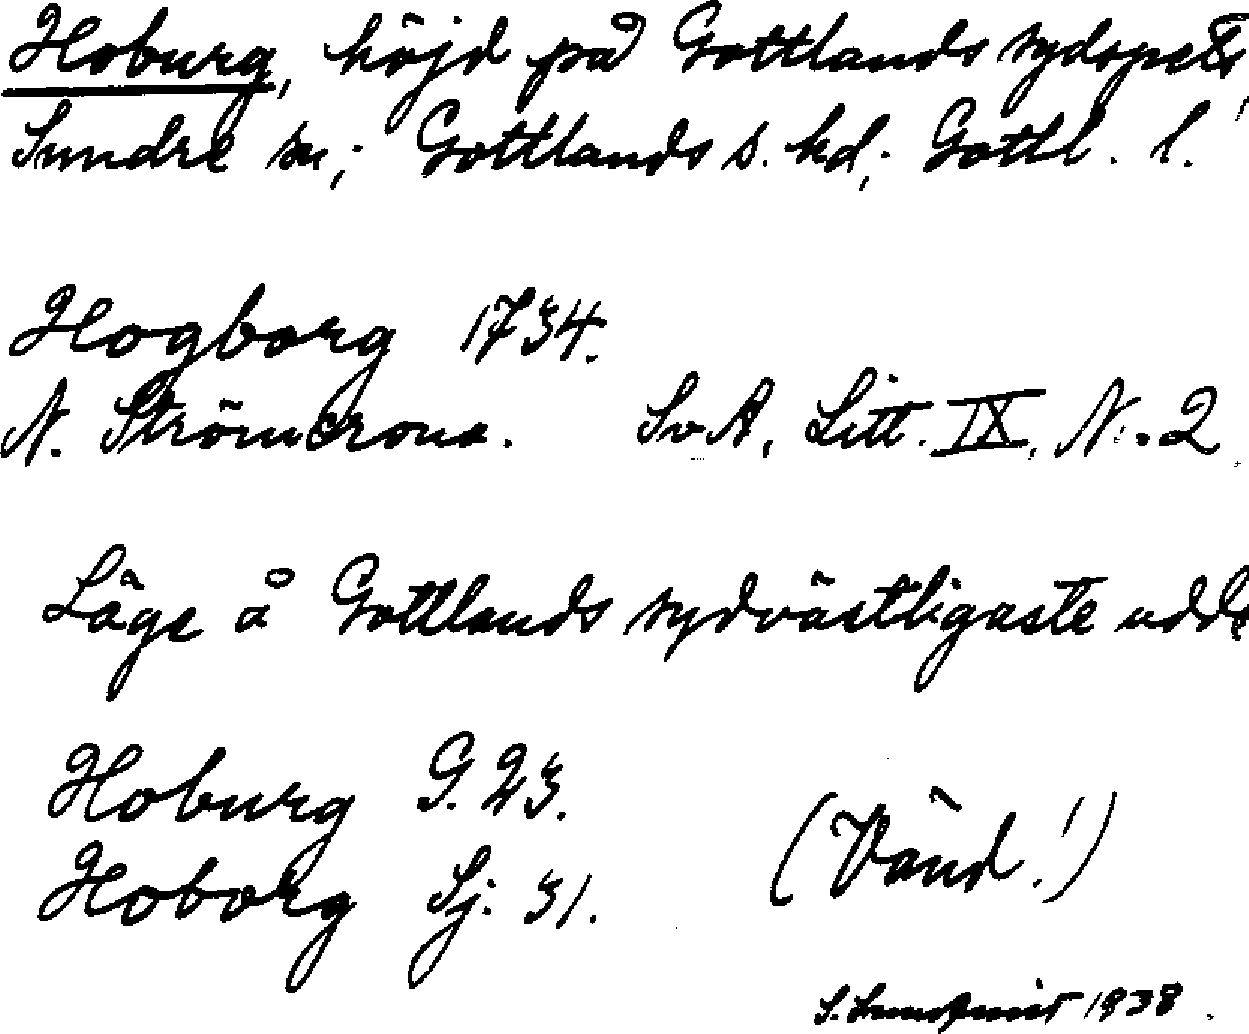 Hoburg, höjd på Gottlands sydspets,
Sundre sn; Gottlands s. hd; Gottl. l.
Hogborg 1734.
N. Strömcrona. SvA, Litt. IX, N. 2
Läge å Gottlands sydvästligaste udde
Hoburg G. 23.
Hoborg Sj. 31. (Vänd!)
S. Lundqvist 1938.